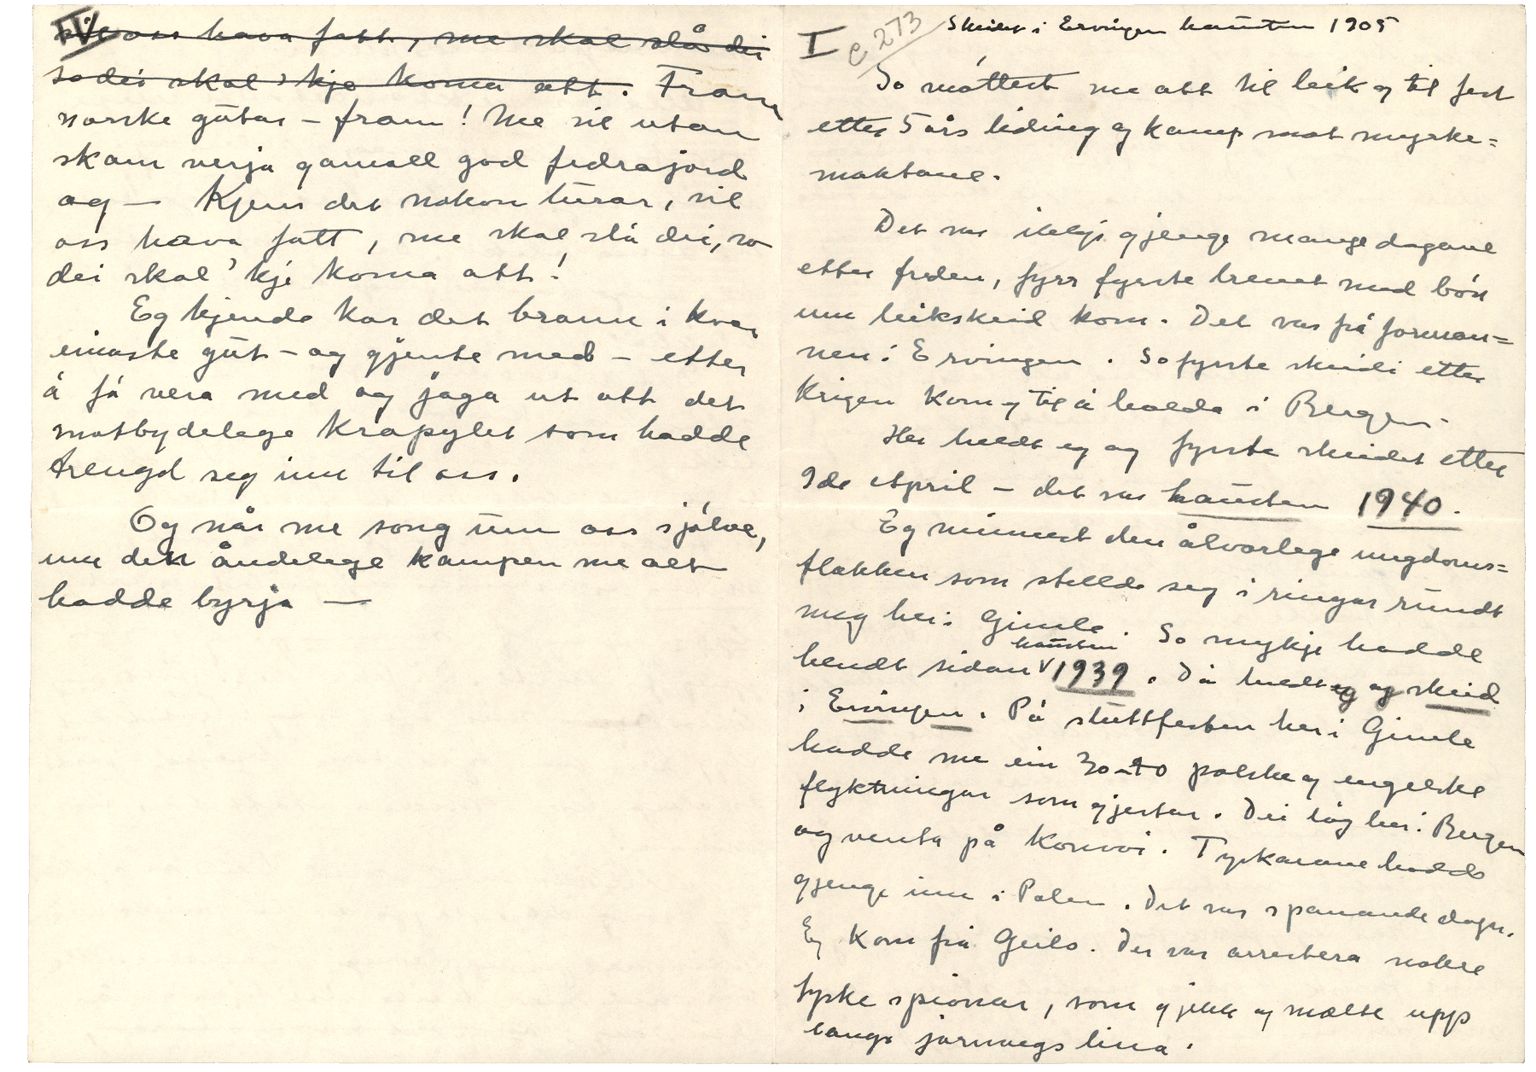 IV
vil oss hava fatt, me skal slå dei
so dei skal 'kje koma att. Fram
norske gutar – fram! Me vil utan
skam verja gamall god fedrajord
og – Kjem det nokon turar, vil
oss hava fatt, me skal slå dei, so
dei skal 'kje koma att!
Eg kjende kor det brann i kvar
einaste gut – og gjente med – etter
å få vera med og jaga ut att det
motbydelege krapylet som hadde
trengd seg inn til oss.
Og når me song um oss sjølve,
um den åndelege kampen me alt
hadde byrja –
I
c 273
Skeidet i Ervingen hausten 1905
So møttest me att til leik og til fest
etter 5 års liding og kamp mot myrke=
maktene.
Det var ikkje gjenge mange dagane
etter freden, fyrr fyrste brevet med bøn
um leikskeid kom. Det var frå forman=
nen i Ervingen. So fyrste skeidi etter
Krigen kom eg til å halda i Bergen.
Her heldt eg og fyrste skeidet etter
9de April – det var hausten 1940.
Eg minnest den ålvorlege ungdoms=
flokken som stellde seg i ringar rundt
meg her i Gimle. So mykje hadde
hendt sidan hausten 1939. Då heldt eg og skeid
i Ervingen. På sluttfesten her i Gimle
hadde me ein 30-40 polske og engelske
flyktningar som gjestar. Dei låg her i Bergen
og venta på Konvoi. Tyskarane hadde
gjenge inn i Polen. Det var spanande dagar.
Eg kom frå Geilo. Der var arrestera nokre
tyske spionar, som gjekk og mælte upp
langs jarnvegs lina.